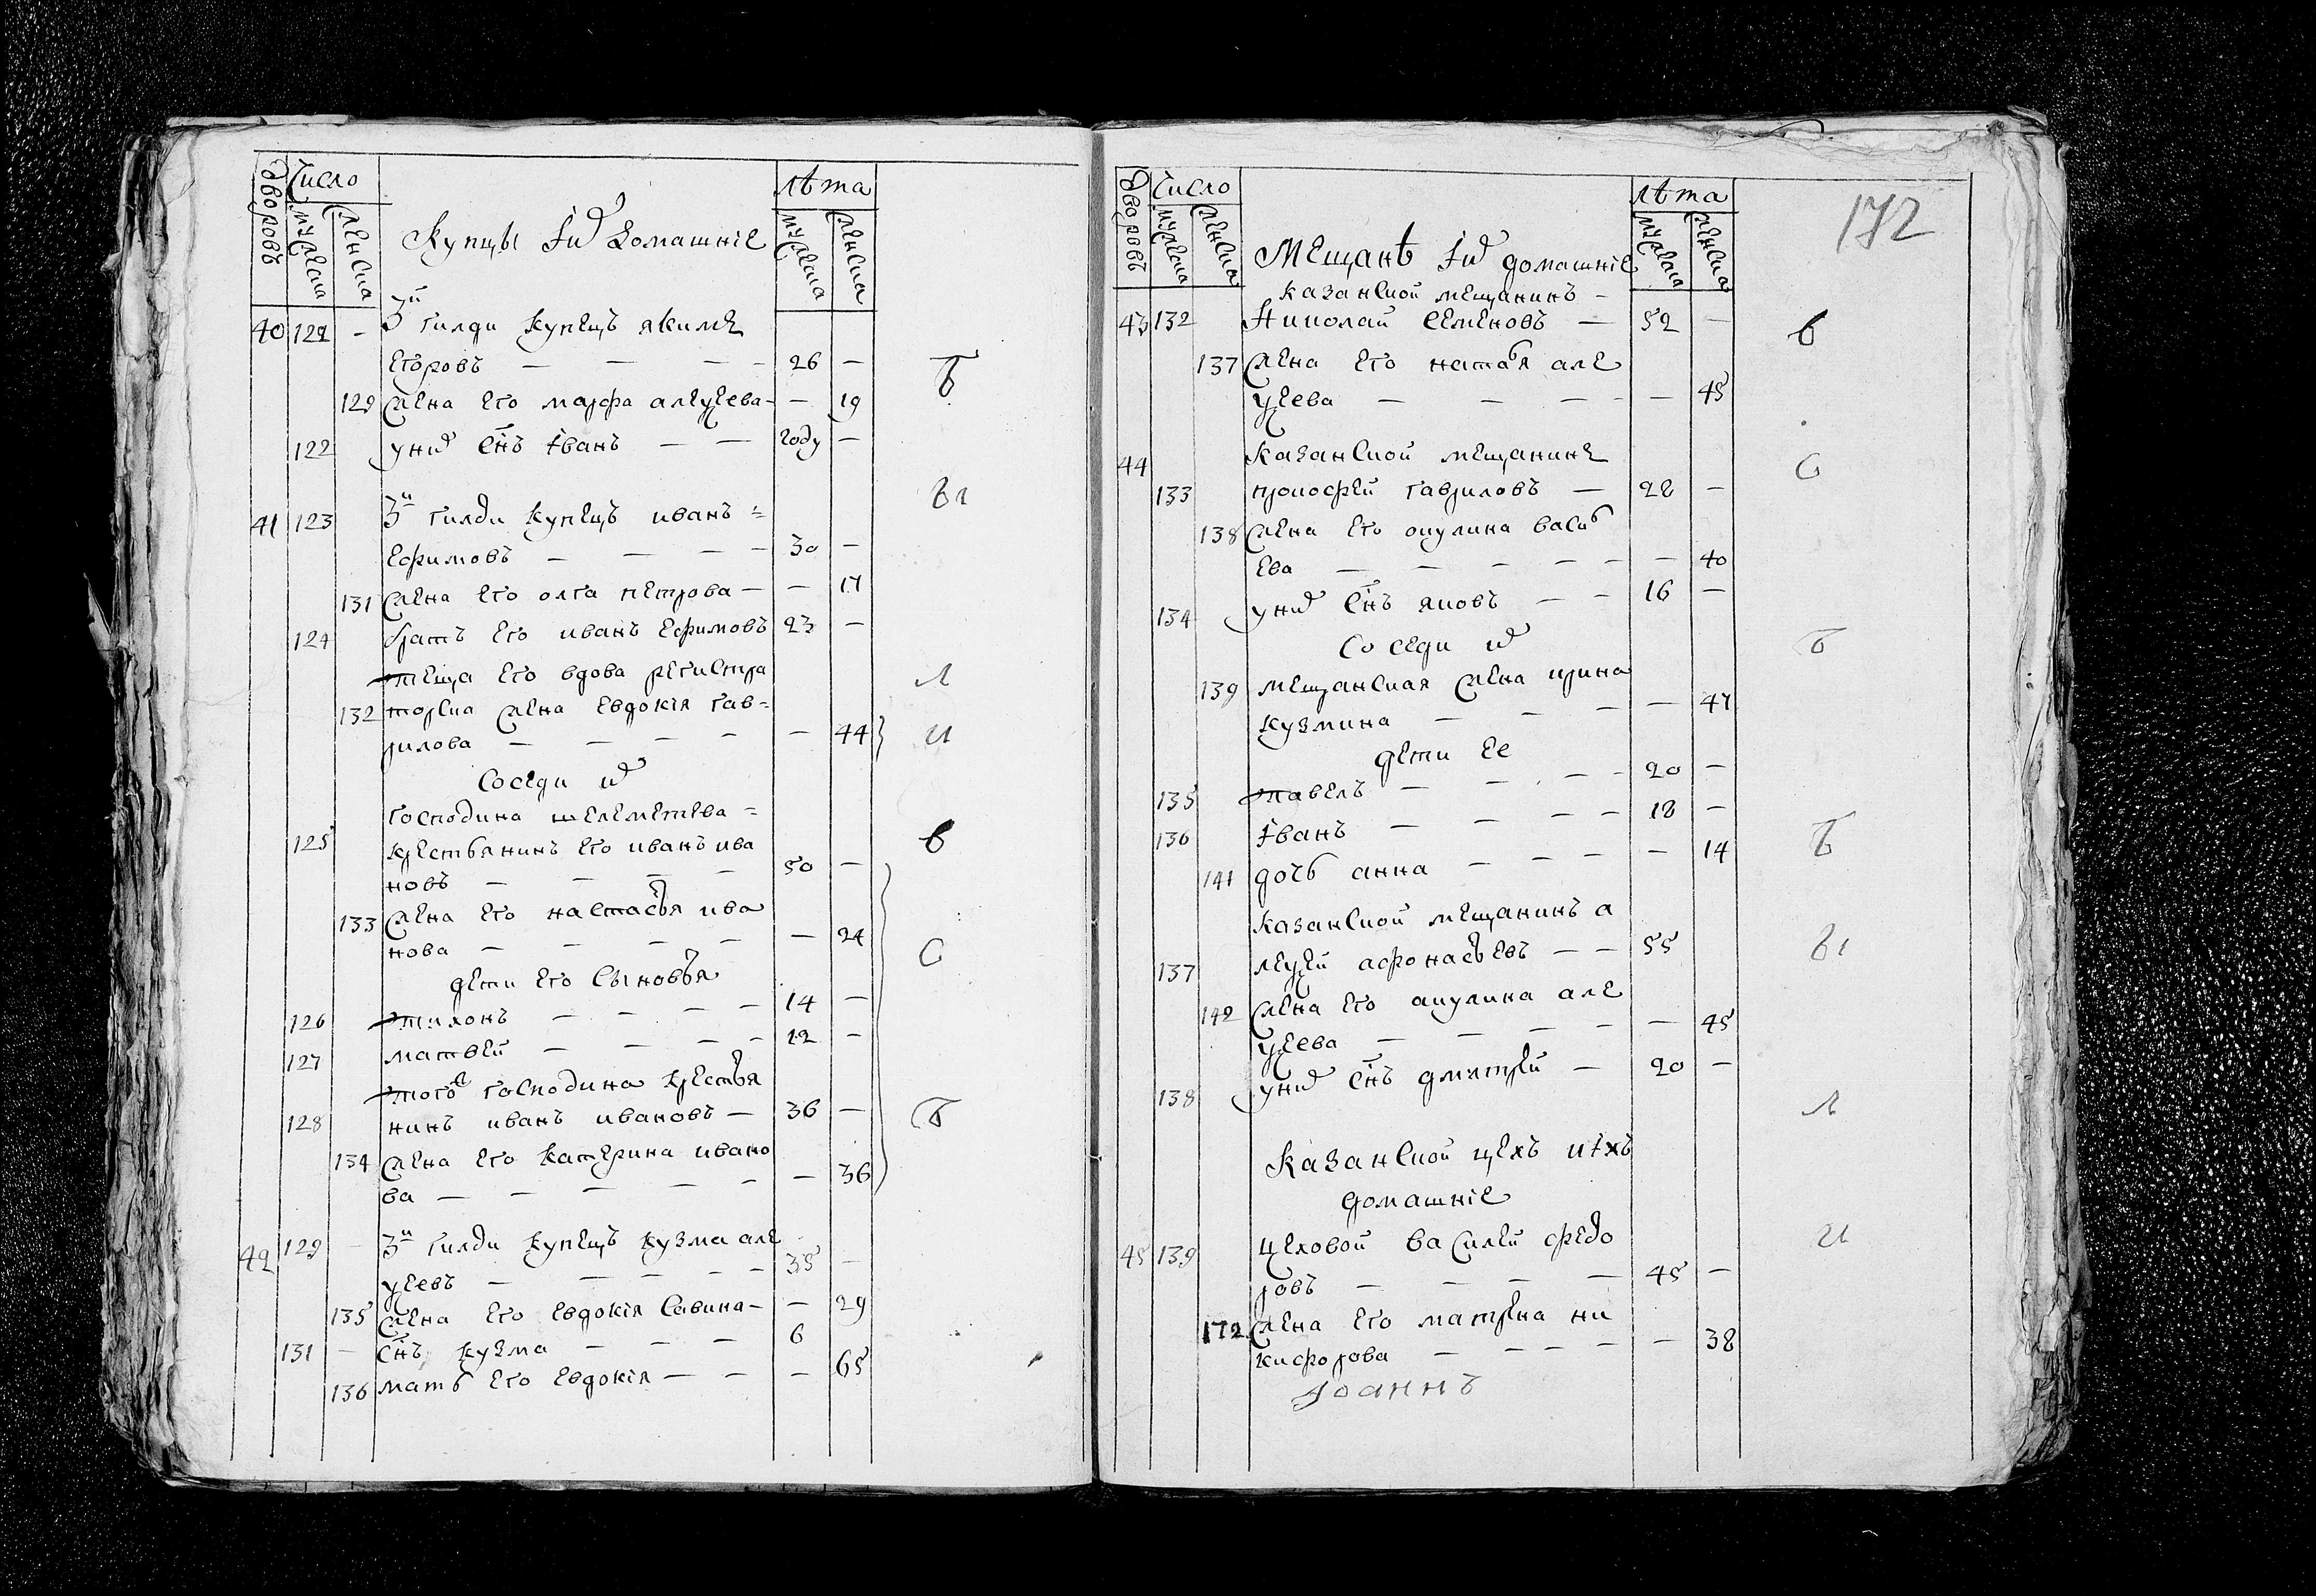 дворовъ число Купцы ихъ домашніе лѣта
мужеска женска мужеска женска
40 121 - 3й гилди купецъ якиме
егоровъ — — — 26 —
129 жена его марфа алеѯеева - — 19
122 у них снъ иванъ — — году —
41 123 3й гилди купецъ иванъ =
ефимовъ — — — 30 —
131 жена его олга петрова — — 17
124 братъ его иванъ ефимовъ 23 —
теща его вдова регистра
132 торска жена евдокія гав=
рилова — — — — — 44
Соседи их
господина шелеметева =
125 крестьянинъ его иванъ ива
новъ — — — — 50 —
133 жена его настасья ива
нова — — — — — 24
дети его сыновья
126 тихонъ — — — — 14 —
127 матвей — — — — 12 —
того господина крестья
128 нинъ иванъ ивановъ — 36 —
134 жена его катерина ивано
ва — — — — — — 36
42 129 — 3й гилди купецъ кузма але
ѯеевъ — — — — — 35 —
135 жена его евдокія савина — — 29
131 — снъ кузма — — — 6
136 мать его евдокія — — — 65
ъ
ы
л
и
в
с
т
172
дворовъ число Мещанѣ ихъ домашніе лѣта
мужеска женска мужеска женска
казанской мещанинъ -
43 132 Николай семеновъ — 52 —
137 жена его наталья але
ѯеева — — — — — 45
44 казанской мещанине
133 прокофей гавриловъ — 28 —
138 жена его окулина василь
ева — — — — — — 40
134 у них снъ яковъ — — 16 —
Соседи их
139 мещанская жена ирина
кузмина — — — — 47
дети ее
135 павелъ — — — — 20 —
136 иванъ — — — — 18 —
141 дочь анна — — — — 14
казанской мещанинъ а
137 леѯей афонасьевъ — — 55
142 жена его акулина але
ѯеева — — — — — 45
138 у них снъ дмитрей — 20 —
Казанской цехъ и ихъ
домашніе
45 139 цеховой василей федо
ровъ — — — — 45 —
172 жена его матрена ни
кифорова — — — — — 38
Іоаннъ
в
с
т
ъ
ы
л
и